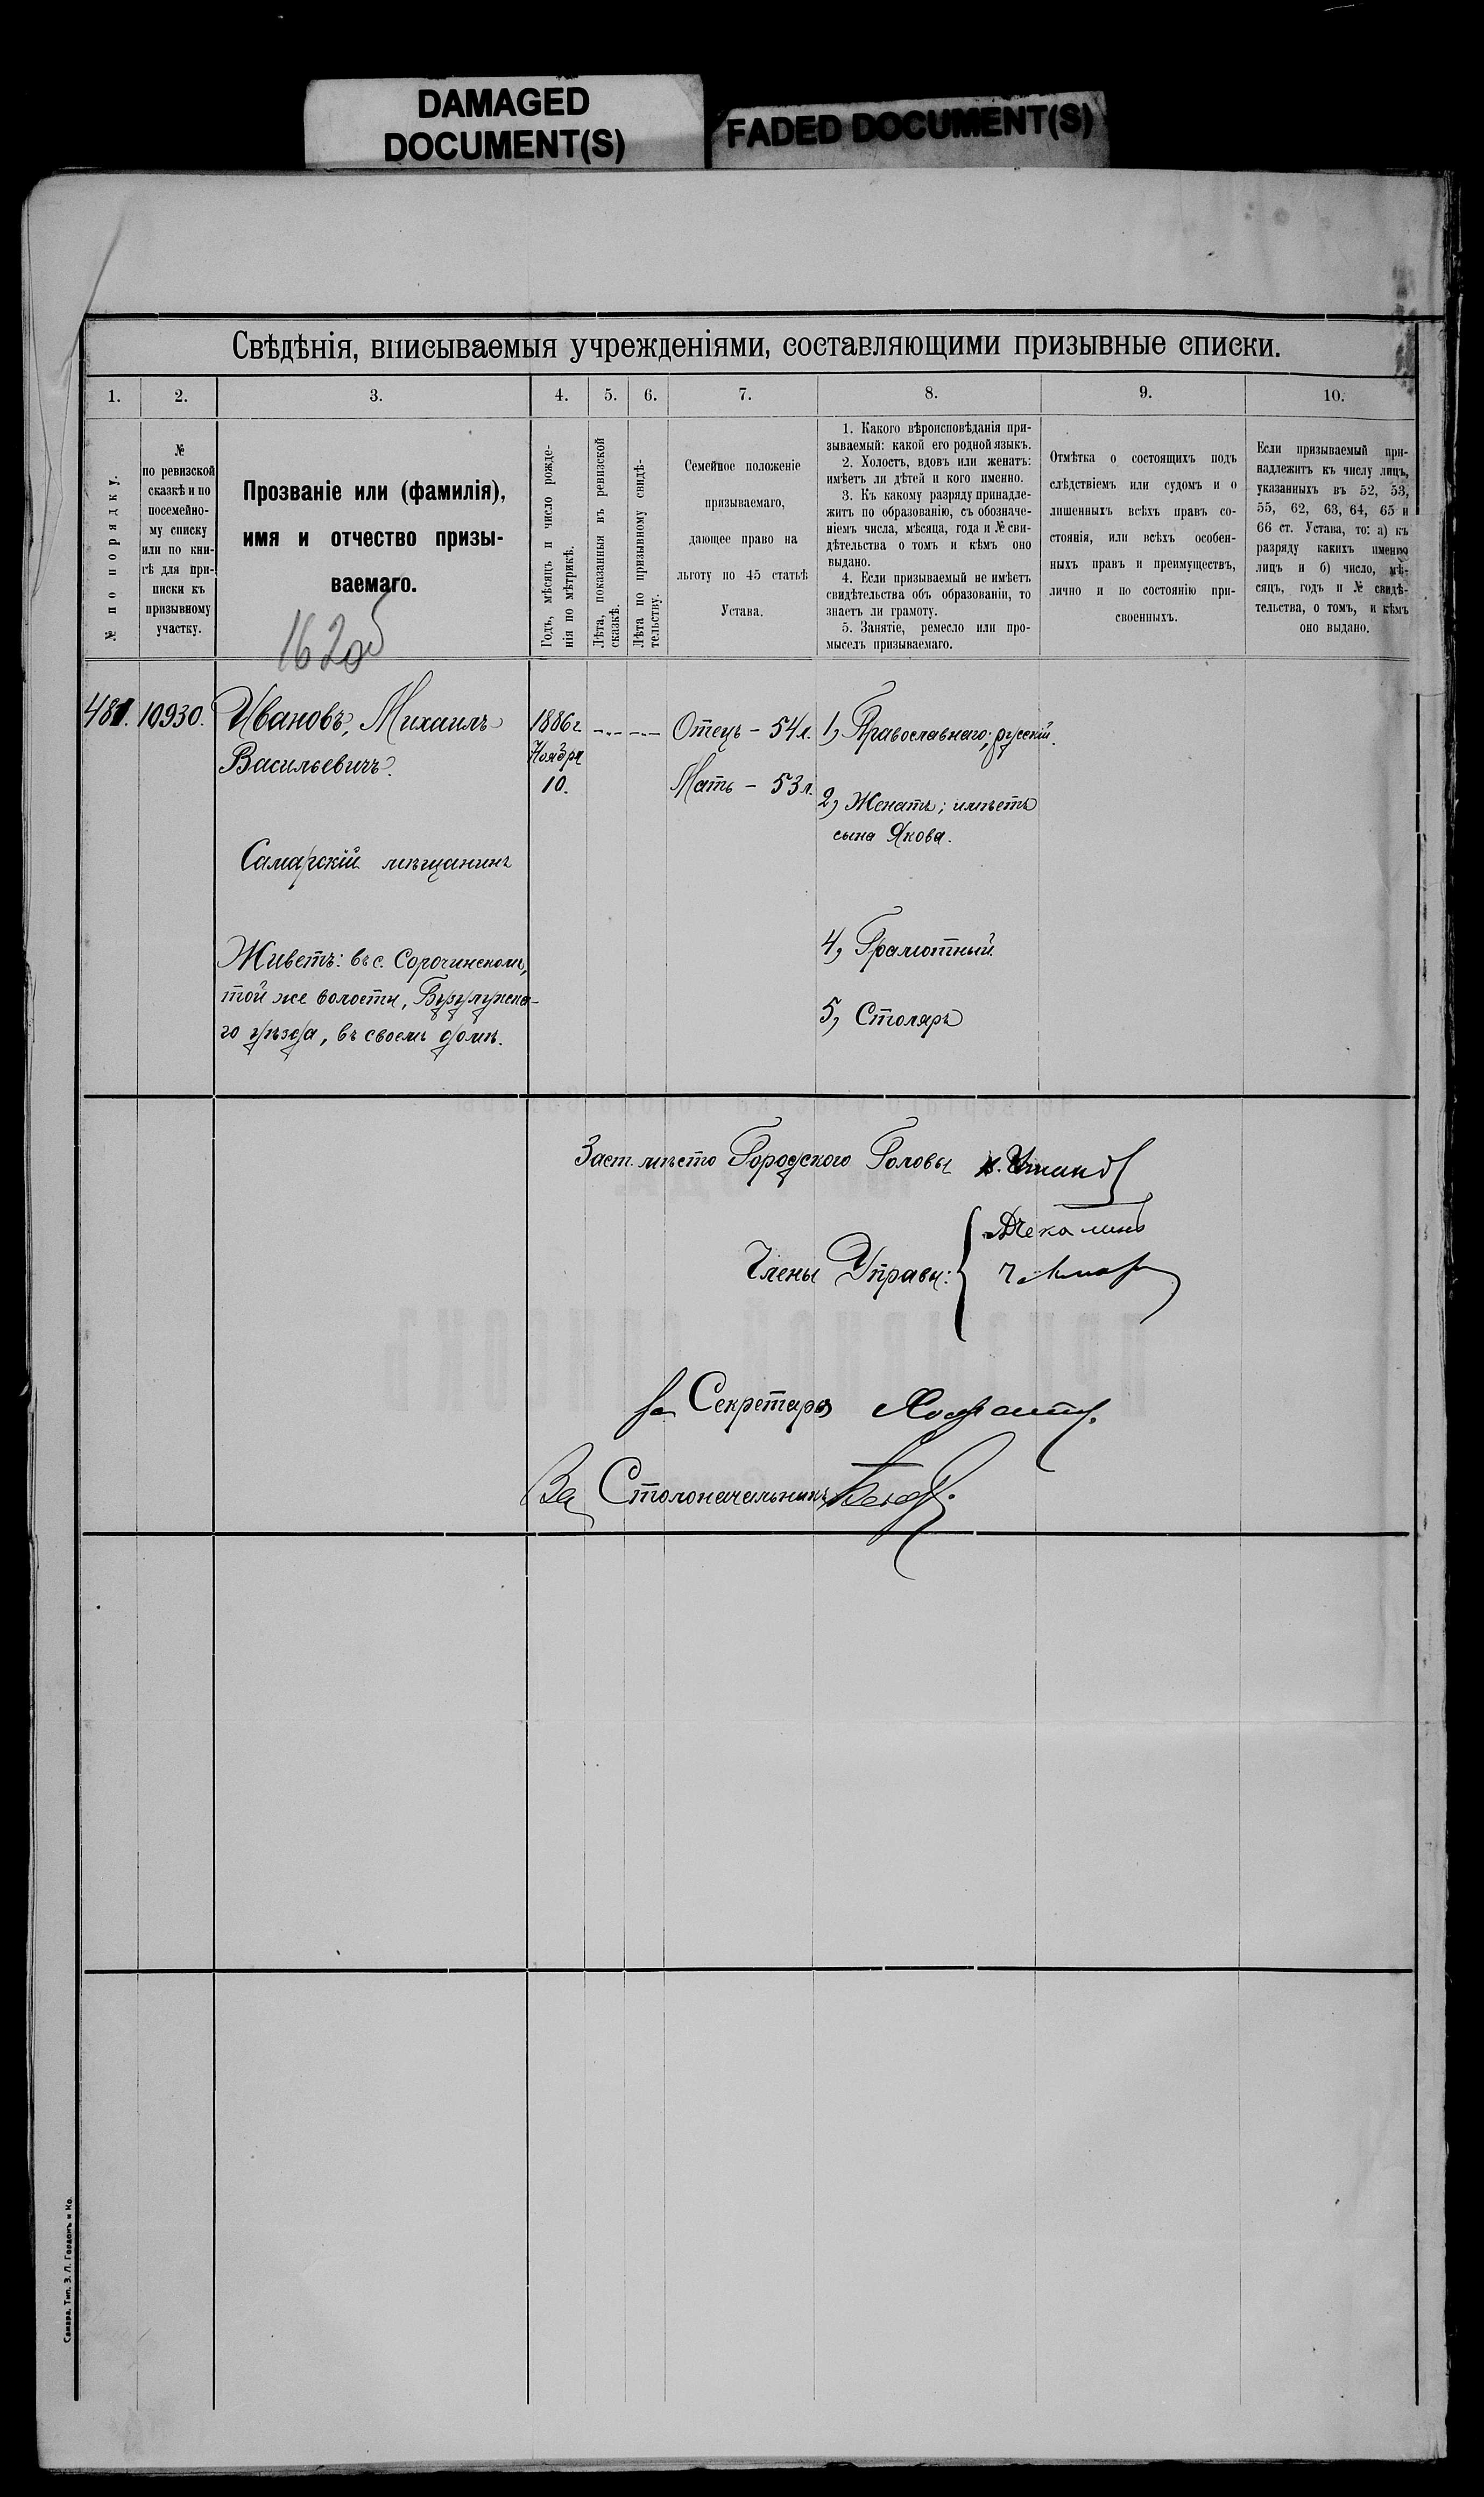 DAMAGED
DOCUMENT(S)
FADED DOCUMENT(S)
Свѣдѣнія, вписываемыя учрежденіями, составляющими призывные списки.
1.
2.
3.
4.
5.
6.
7.
8.
9.
10.
№ по порядку.
№
по ревизской
сказкѣ и по
посемейно-
му списку
или по кни-
гѣ для при-
писки къ
призывному
участку.
Прозваніе или (фамилія),
имя и отчество призы-
ваемаго.
162об
Годъ, мѣсяцъ и число рожде-
нія по мѣтрикѣ.
Лѣта, показанныя въ ревизской
сказкѣ.
Лѣта по призывному свидѣ-
тельству.
Семейное положеніе
призываемаго,
дающее право на
льготу по 45 статьѣ
Устава.
1. Какого вѣроисповѣданія при-
зываемый: какой его родной языкъ.
2. Холостъ, вдовъ или женатъ:
имѣетъ ли дѣтей и кого именно.
3. Къ какому разряду принадле-
житъ по образованію, съ обозначе-
ніемъ числа, мѣсяца, года и № сви-
дѣтельства о томъ и кѣмъ оно
выдано.
4. Если призываемый не имѣетъ
свидѣтельства объ образованіи, то
знаетъ ли грамоту.
5. Занятіе, ремесло или про-
мыселъ призываемаго.
Отмѣтка о состоящихъ подъ
слѣдствіемъ или судомъ и о
лишенныхъ всѣхъ правъ со-
стоянія, или всѣхъ особен-
ныхъ правъ и преимуществъ,
лично и по состоянію при-
своенныхъ.
Если призываемый при-
надлежитъ къ числу лицъ,
указанныхъ въ 52, 53,
55, 62, 63, 64, 65 и
66 ст. Устава, то: а) къ
разряду какихъ именно
лицъ и б) число, мѣ-
сяцъ, годъ и № свидѣ-
тельства, о томъ, и кѣмъ
оно выдано.
481.
10930.
Ивановъ, Михаилъ
Васильевичъ.
Самарскій мѣщанинъ
Живетъ: въ с. Сорочинскомъ,
той же волости, Бузулукска-
го уѣзда, въ своемъ домѣ.
1886 г.
Ноября
10.
Отецъ – 54 л.
Мать – 53 л.
1, Православнаго; русскій.
2, Женатъ; имѣетъ
сына Якова.
4, Грамотный.
5, Столяръ
Заст. мѣсто Городского Головы
Члены Управы:
Чекалинъ
за Секретаря
Столоначальникъ
Самара, Тип. З. Л. Гордонъ и Ко.